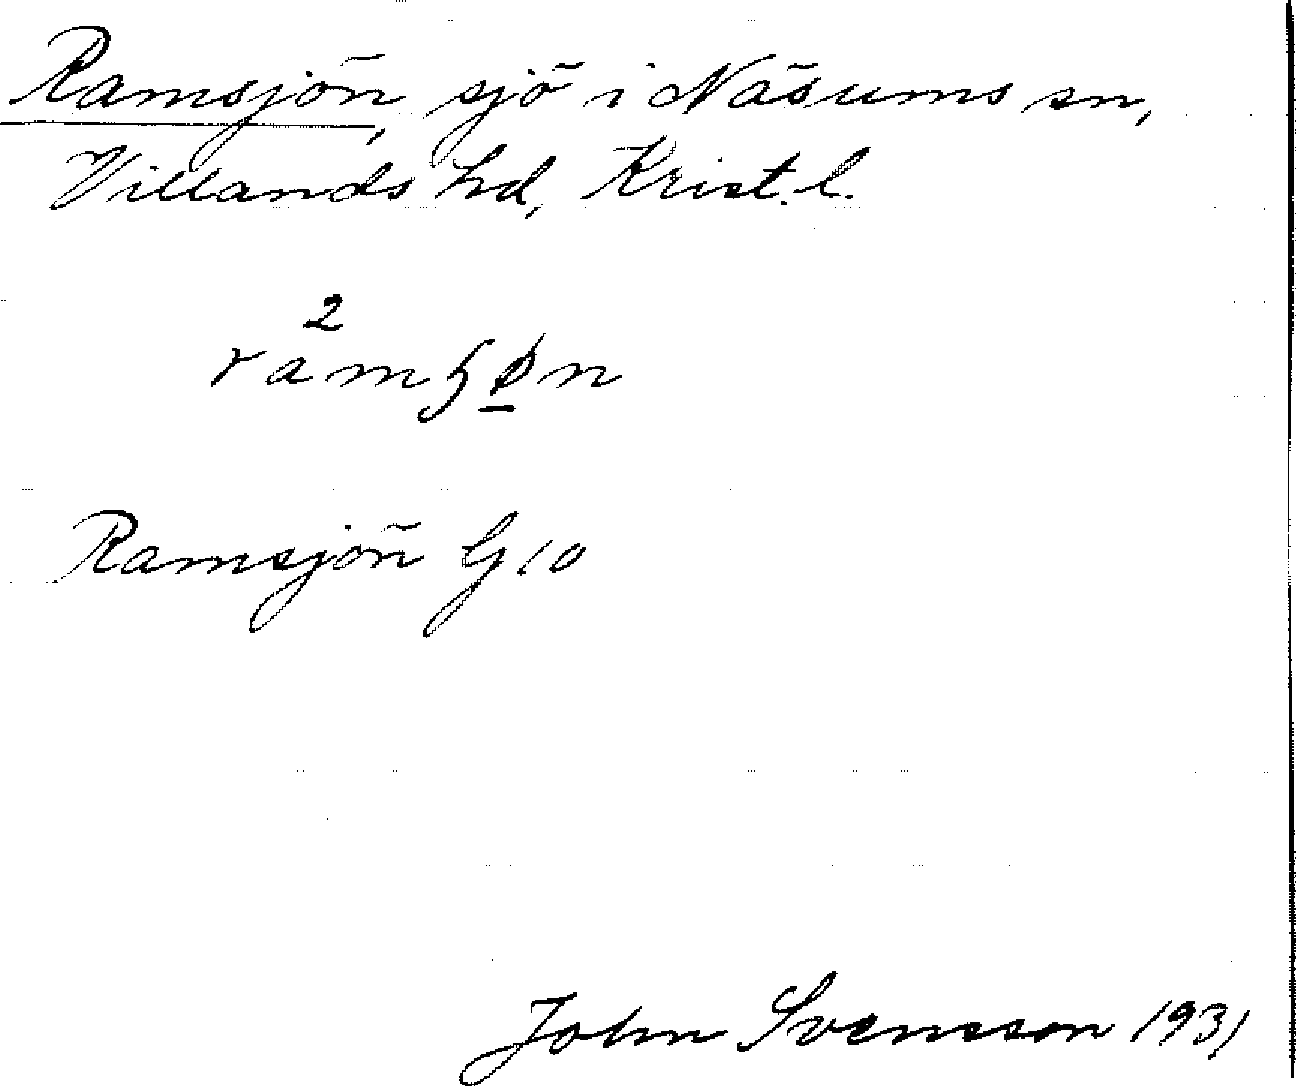 Ramsjön, sjö i Näsums sn,
Villands hd, Krist. l.
2
ramʂø̲n
Ramsjön G 10
John Svensson 1931